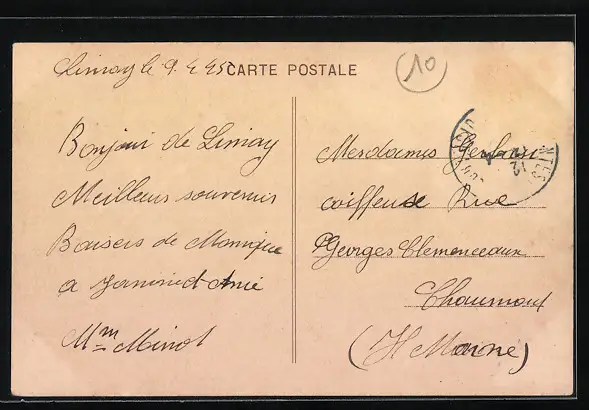 Limay le 9. 4 45 CARTE POSTALE
10
Bonjour de Limay
Meilleur souvenir
Baisers de Monique
a Jaminet Amie
Mm Minot
Mesdames
coiffeuse Rue
Georges Clemenceaux
Chaumont
(H Marne)